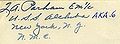 F.A. Parham EM1/c
U.S.S. Alchiba AKA-6
New York, N.Y.
N.M.C.